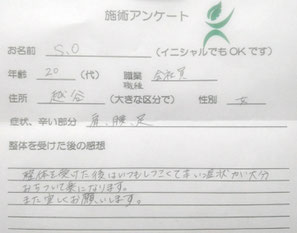 施術アンケート
お名前 S.O (イニシャルでもOKです)
年齢 20 (代) 職業 会社員
職種
住所 越谷 (大きな区分で) 性別 女
症状、辛い部分 肩、腰、足
整体を受けた後の感想
整体を受けた後はいつもしつこくてまいっ症状がい大分
おちついて楽になります。
また宜しくお願いします。